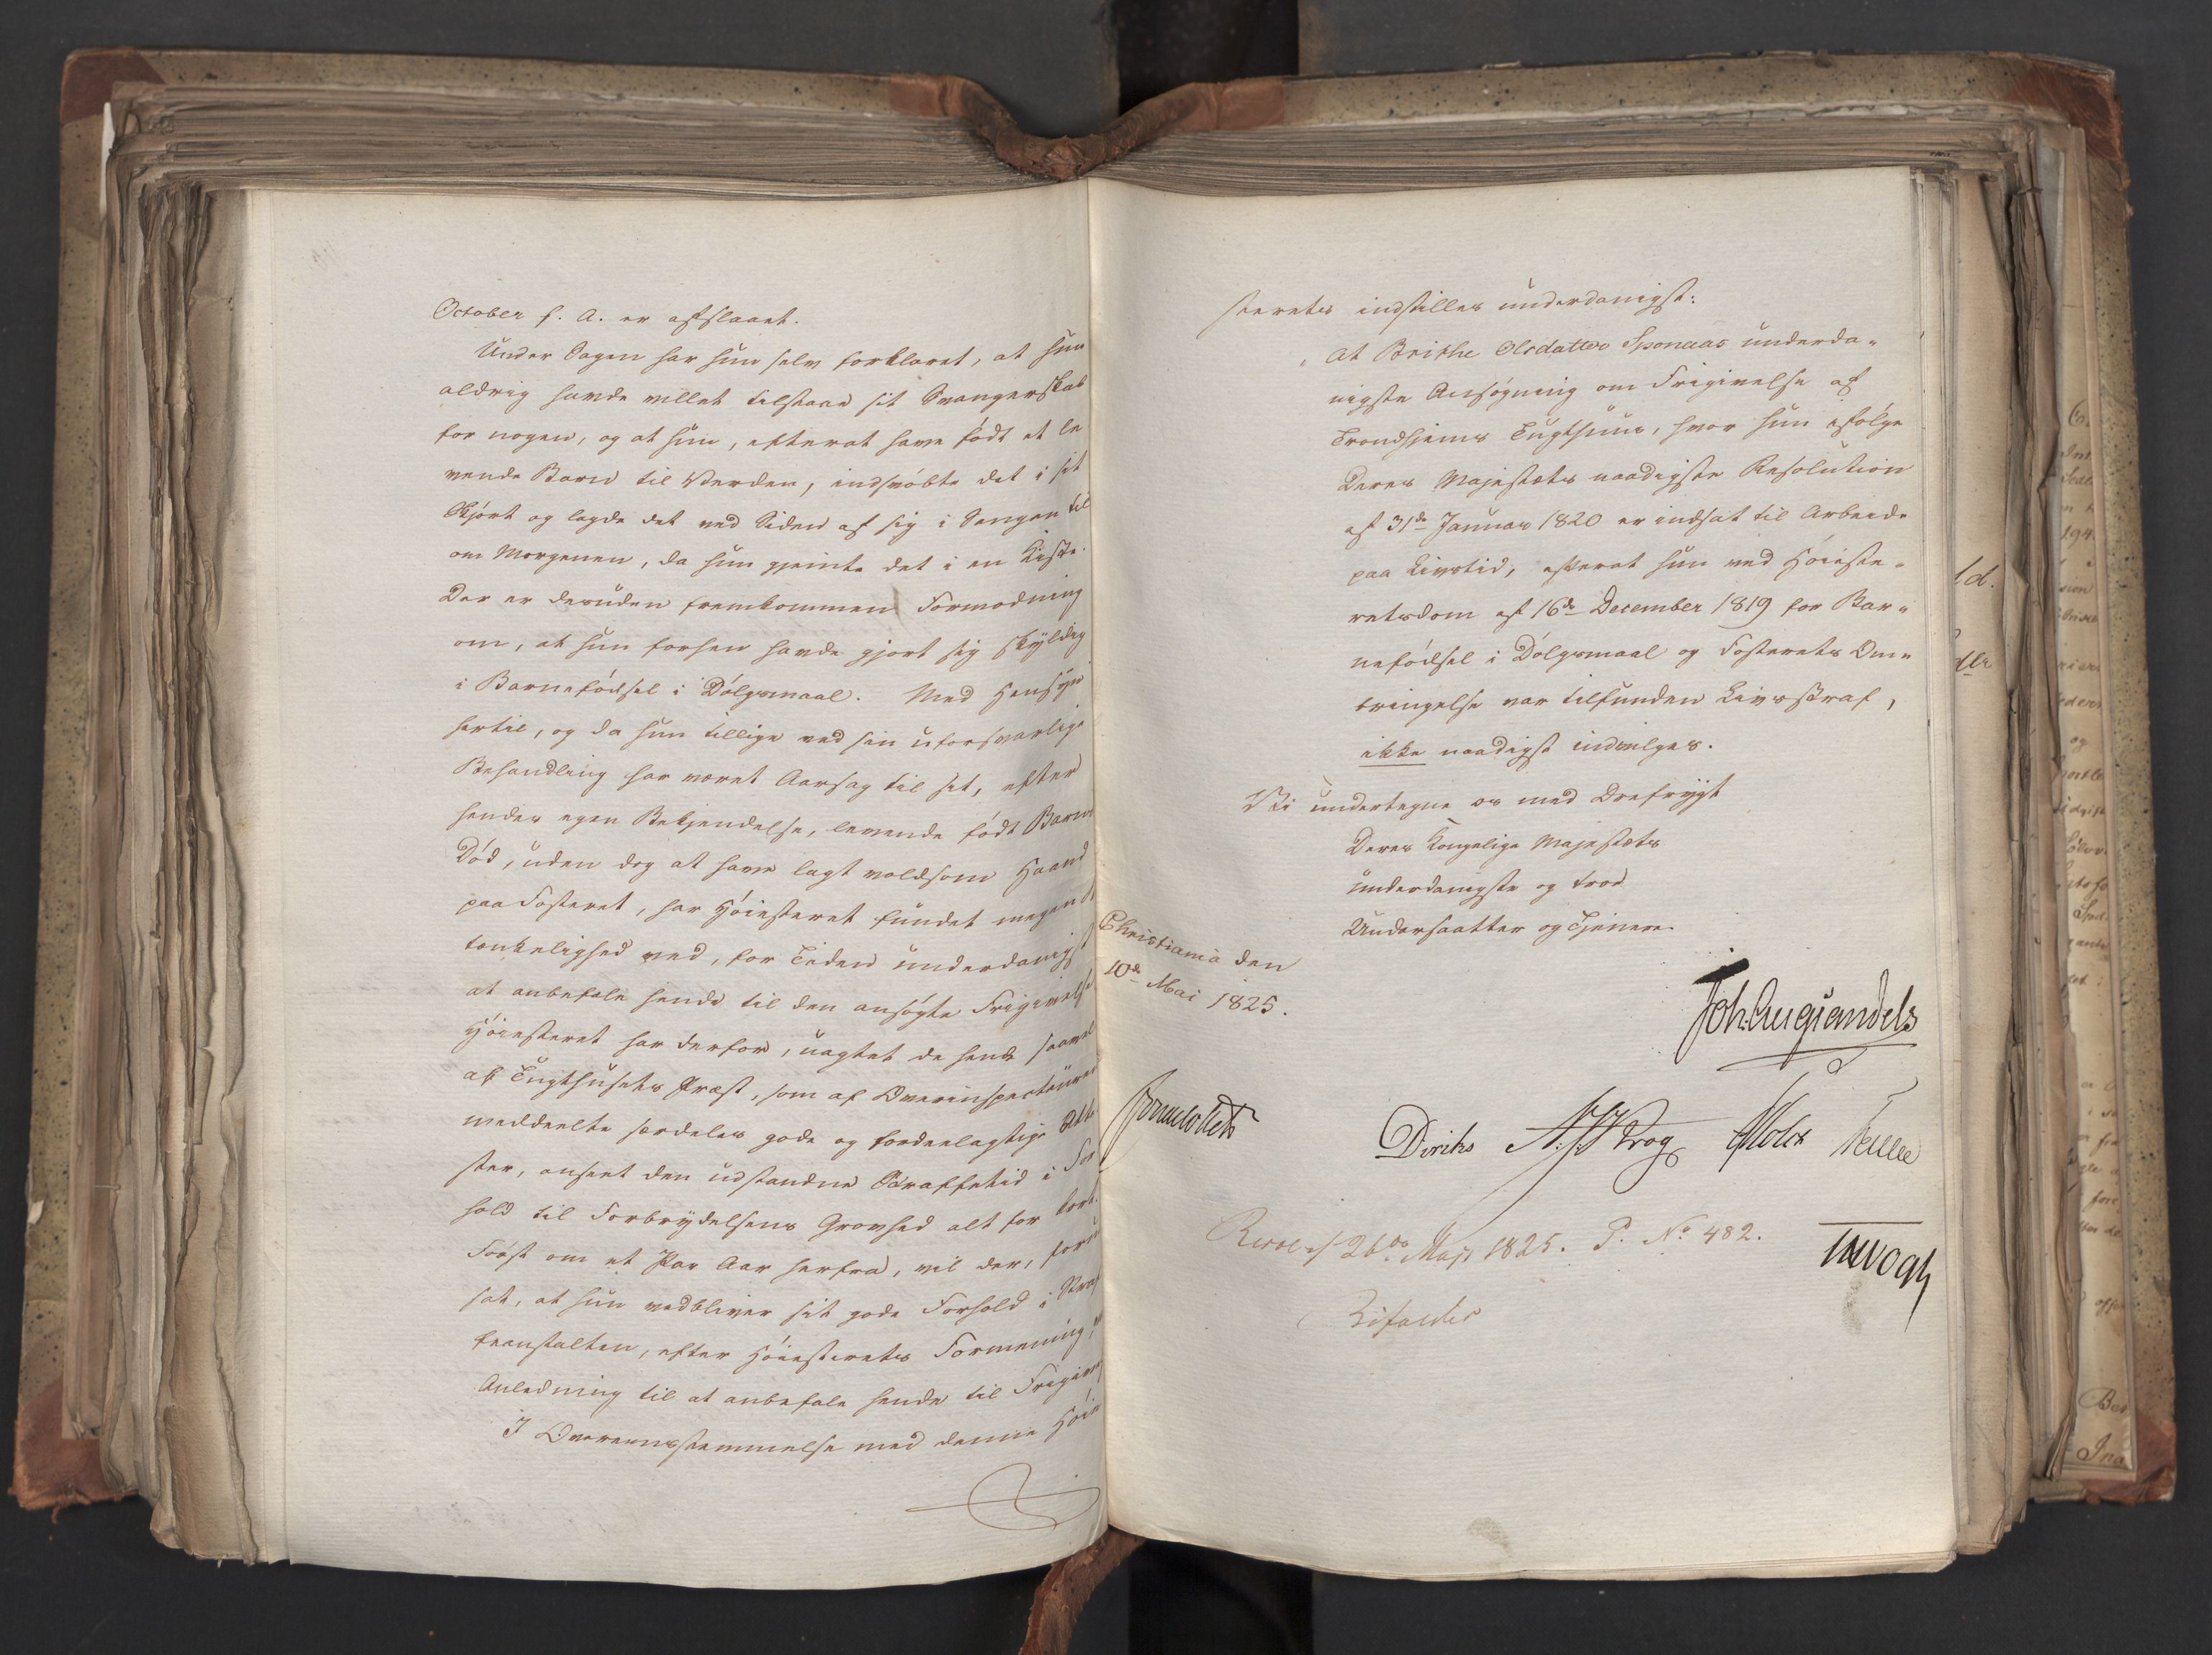 October f. A. er afslaaet.
Under Sagen har hun selv forklaret, at hun
aldrig havde villet tilstaae sit Svangerskab
for nogen, og at hun, efterat have født et le
vende Barn til Verden, indsvøbte det i sit
Skjørt og lagde det ved Siden af sig i Sengen til
om Morgenen, da hun gjemte det i en Kiste.
Der er desuden fremkommen Formodning
om, at hun forhen havde gjort sig skyldig
i Barnefødsel i Dølgsmaal. Med Hensyn
hertil, og da hun tillige ved sin uforsvarlige
Behandling har været Aarsag til sit, efter
hendes egen Bekjendelse, levende fødte Barns
Død, uden dog at have lagt voldsom Haand
paa Fosteret, har Høiesteret fundet megen Be
tænkelighed ved, for Tiden underdanigst
at anbefale hende til den ansøgte Frigivelse
Høiesteret har derfor, uagtet de hende saavel
af Tugthusets Præst, som af Overinspecteuren
meddeelte særdeles gode og fordeelagtige Atte
ster, anseet den udstandne Straffetid i For
hold til Forbrydelsens Grovhed alt for kort.
Først om et Par Aar herfra, vil der, forud
sat, at hun vedbliver sit gode Forhold i Straf
feanstalten, efter Høiesterets Formening,
Anledning til at anbefale hende til Frigivel
I Overeensstemmelse med denne Høie
sterets indstilles underdanigst:
At Brithe Olsdatter Sponaas underda-
nigste Ansøgning om Frigivelse af
Trondhjems Tugthuus, hvor hun ifølge
Deres Majestæts naadigste Resolution
af 31de Januar 1820 er indsat til Arbeide
paa Livstid, efterat hun ved Høieste-
retsdom af 16de December 1819 for Bar-
nefødsel i Dølgsmaal og Fosterets Om-
bringelse var tilfunden Livsstraf,
ikke naadigst indvilges.
Vi undertegne os med Ærefrygt
Deres Kongelige Majestæts
underdanigste og troe
Undersaatter og Tjenere.
Christiania den
10de Mai 1825.
Joh. Aug Sandels
Sommerfeldt
Diriks Krog Holst
Resol. af 26de Maji 1825. P. No 482.
Vogt
Bifaldes